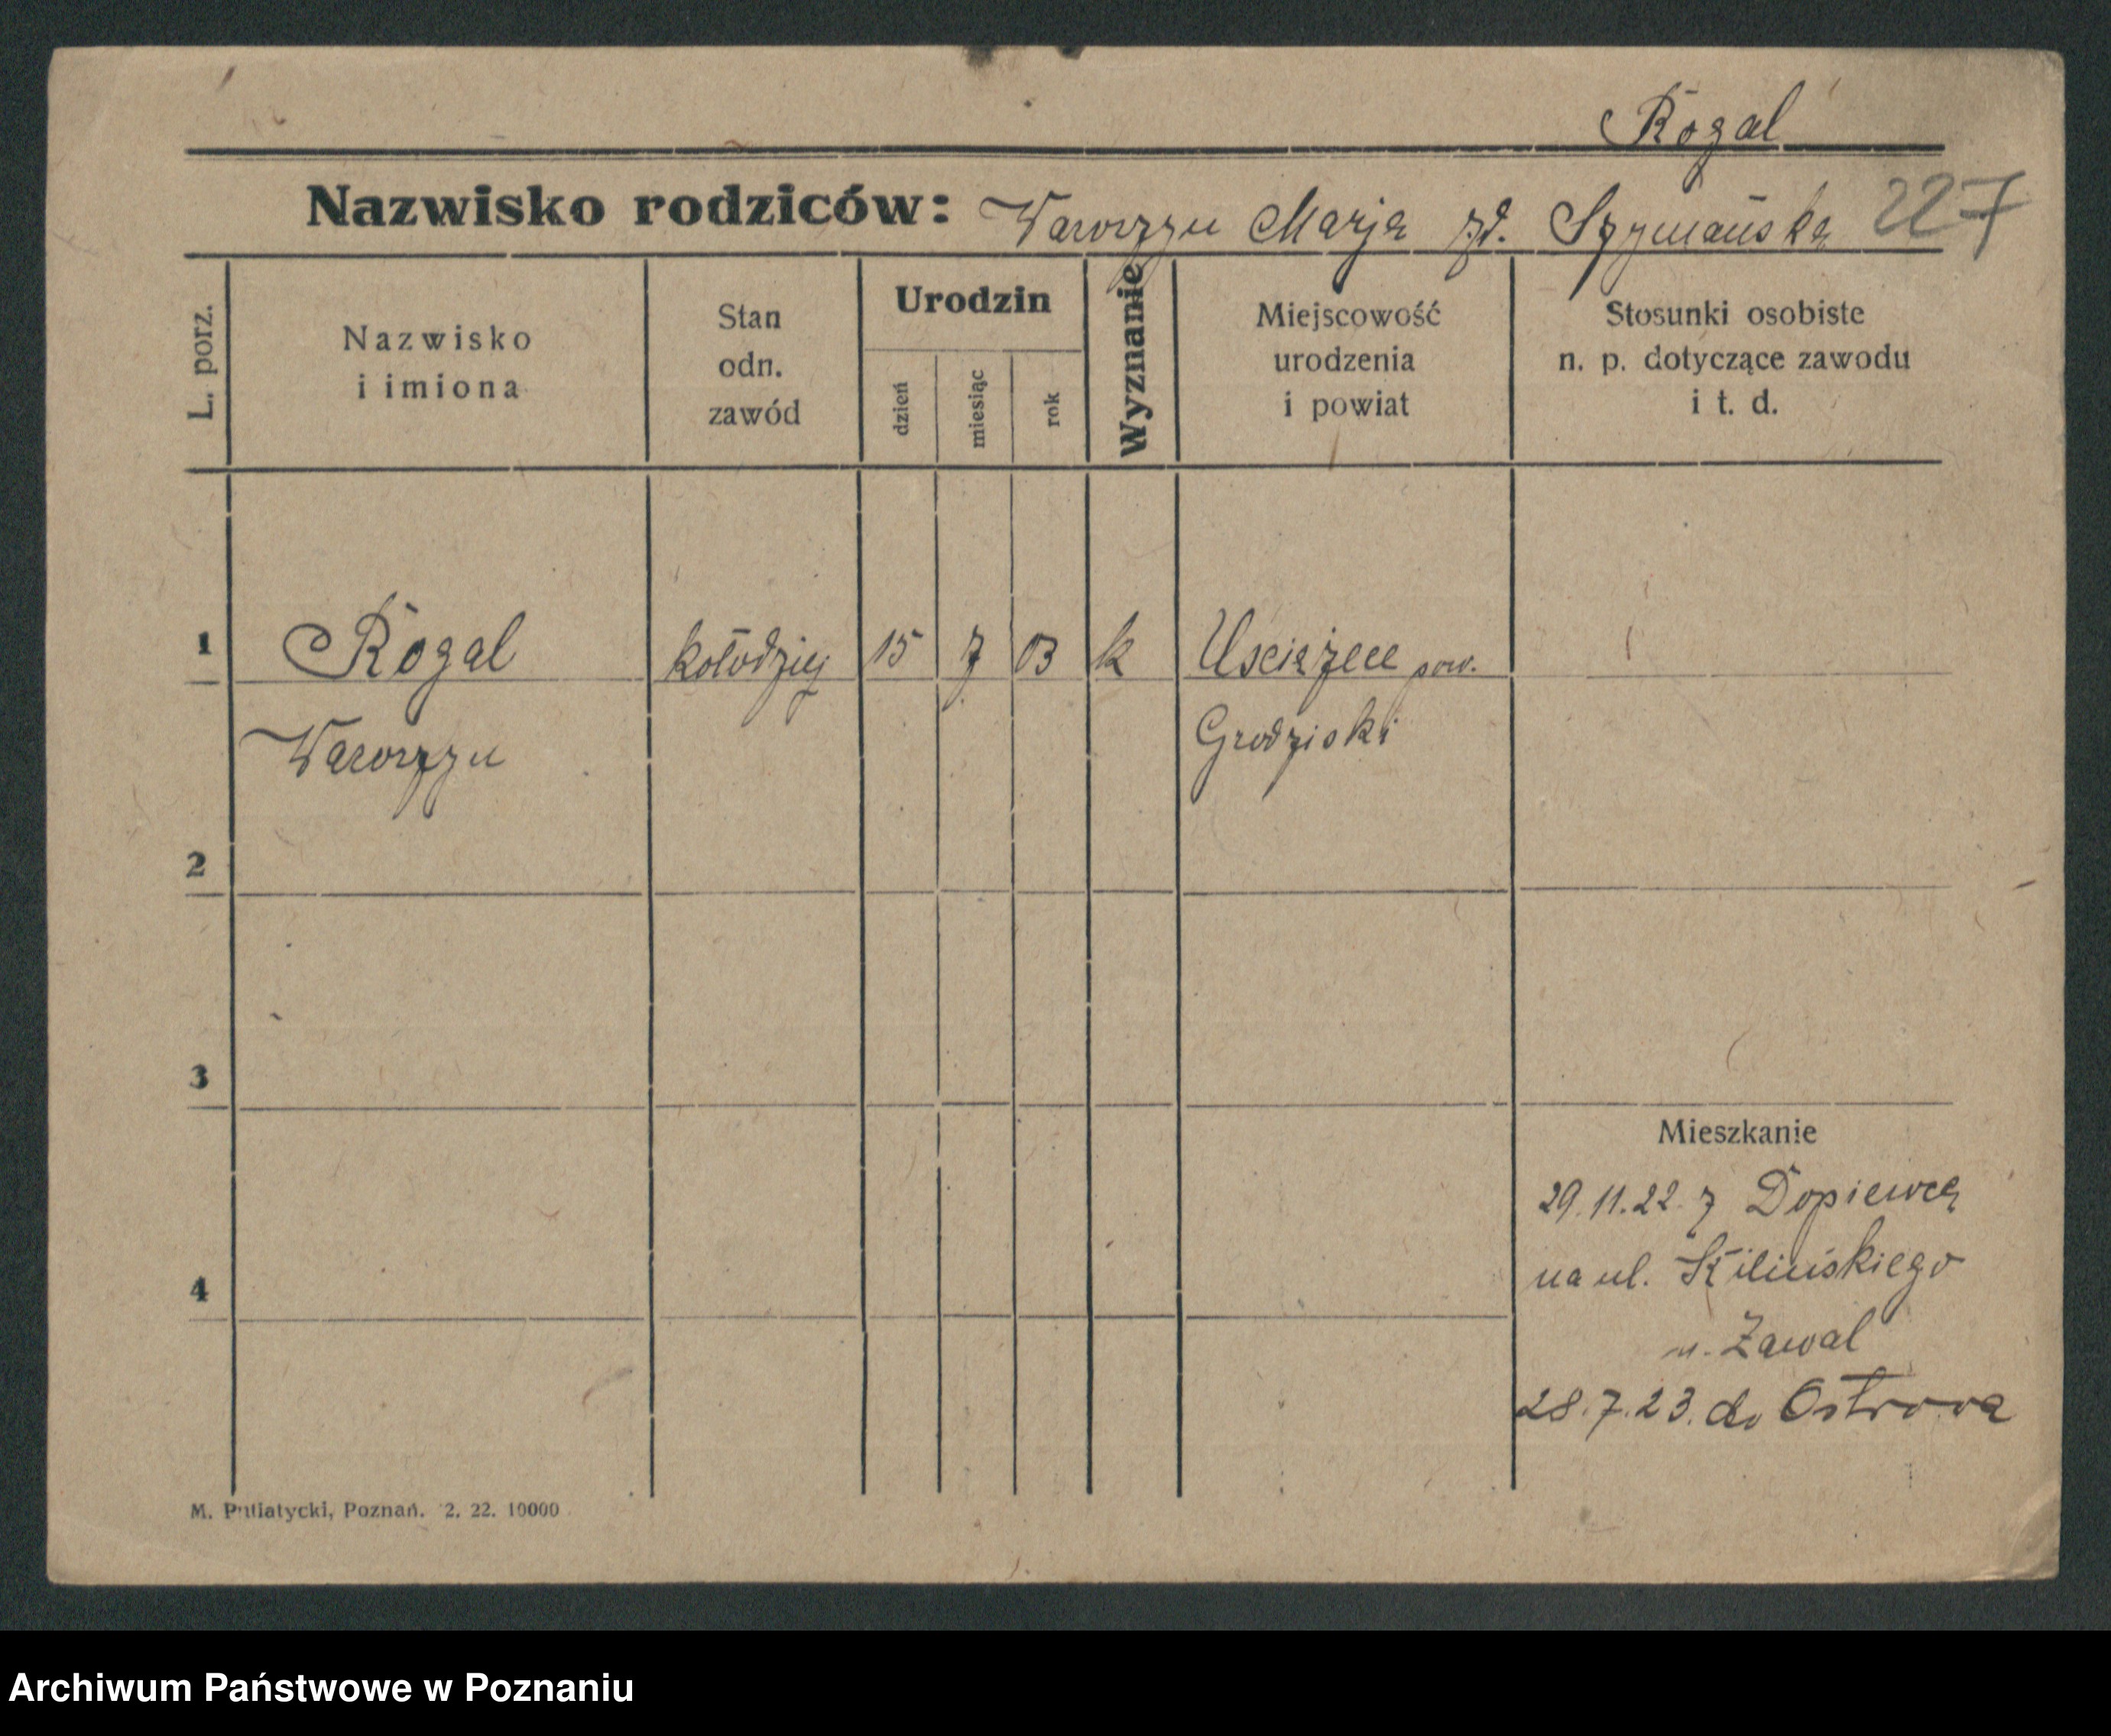 Rogal
Nazwisko rodziców: Wawrzyn Marja zd. Szymańska 227
L. porz.
Nazwisko
i imiona
Stan
odn.
zawód
Urodzin
dzień
miesiąc
rok
Wyznanie
Miejscowość
urodzenia
i powiat
Stosunki osobiste
n. p. dotyczące zawodu
i t. d.
1 Rogal kołodziej 15 7 03 k Uscięzece pow.
Wawrzyn Grodziski
2
3
Mieszkanie
29.11.22. z Dopiewca
na ul. Kilińskiego
4
u. Zawal
28.7.23. do Ostrowa
M. Putiatycki, Poznań. 2. 22. 10000
Archiwum Państwowe w Poznaniu